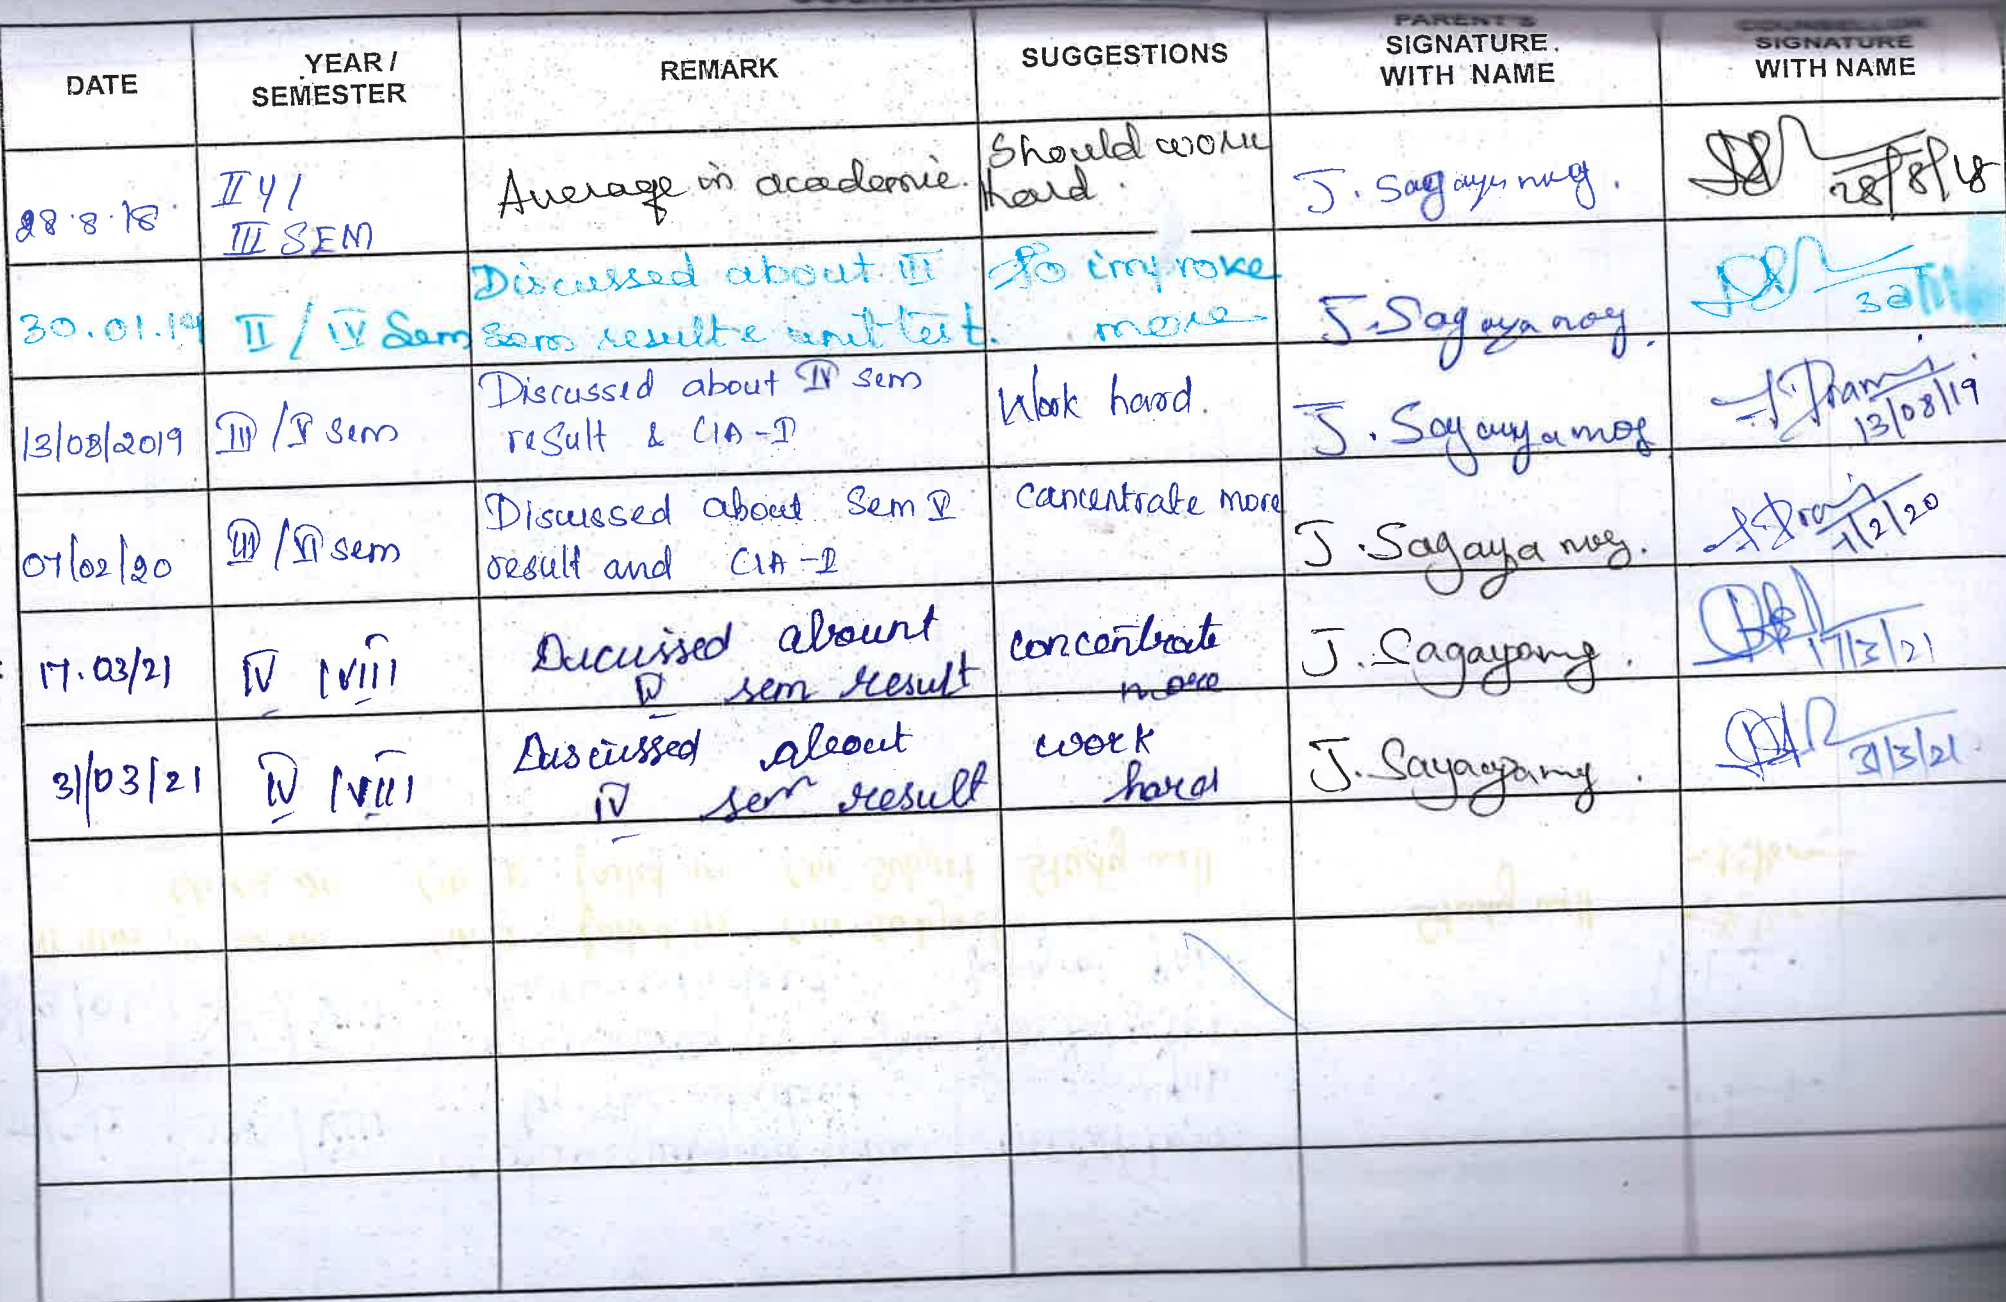 DATE
YEAR /
SEMESTER
REMARK
SUGGESTIONS
PARENT'S
SIGNATURE.
WITH NAME
COUNSELLOR
SIGNATURE
WITH NAME
28.8.18
II Y /
III SEM
Average in academic.
Should work
hard.
J. Sagayamog.
28/8/18
30.01.19
II / IV Sem
Discussed about III
Sem result & unit test.
To improve
more
J. Sagayamog.
13/08/2019
III / V sem
Discussed about IV sem
result & CIA-I
Work hard.
J. Sagayamog
13/08/19
07/02/20
III / VI sem
Discussed about Sem V
result and CIA-I
cancentrate more
J. Sagayamog.
7/2/20
17.03/21
IV / VIII
Ducuissed abount
IV sem result
concentrate
more
J. Sagayamg.
17/3/21
31/03/21
IV / VIII
Discussed about
IV sem result
work
hard
J. Sayagamg.
31/3/21